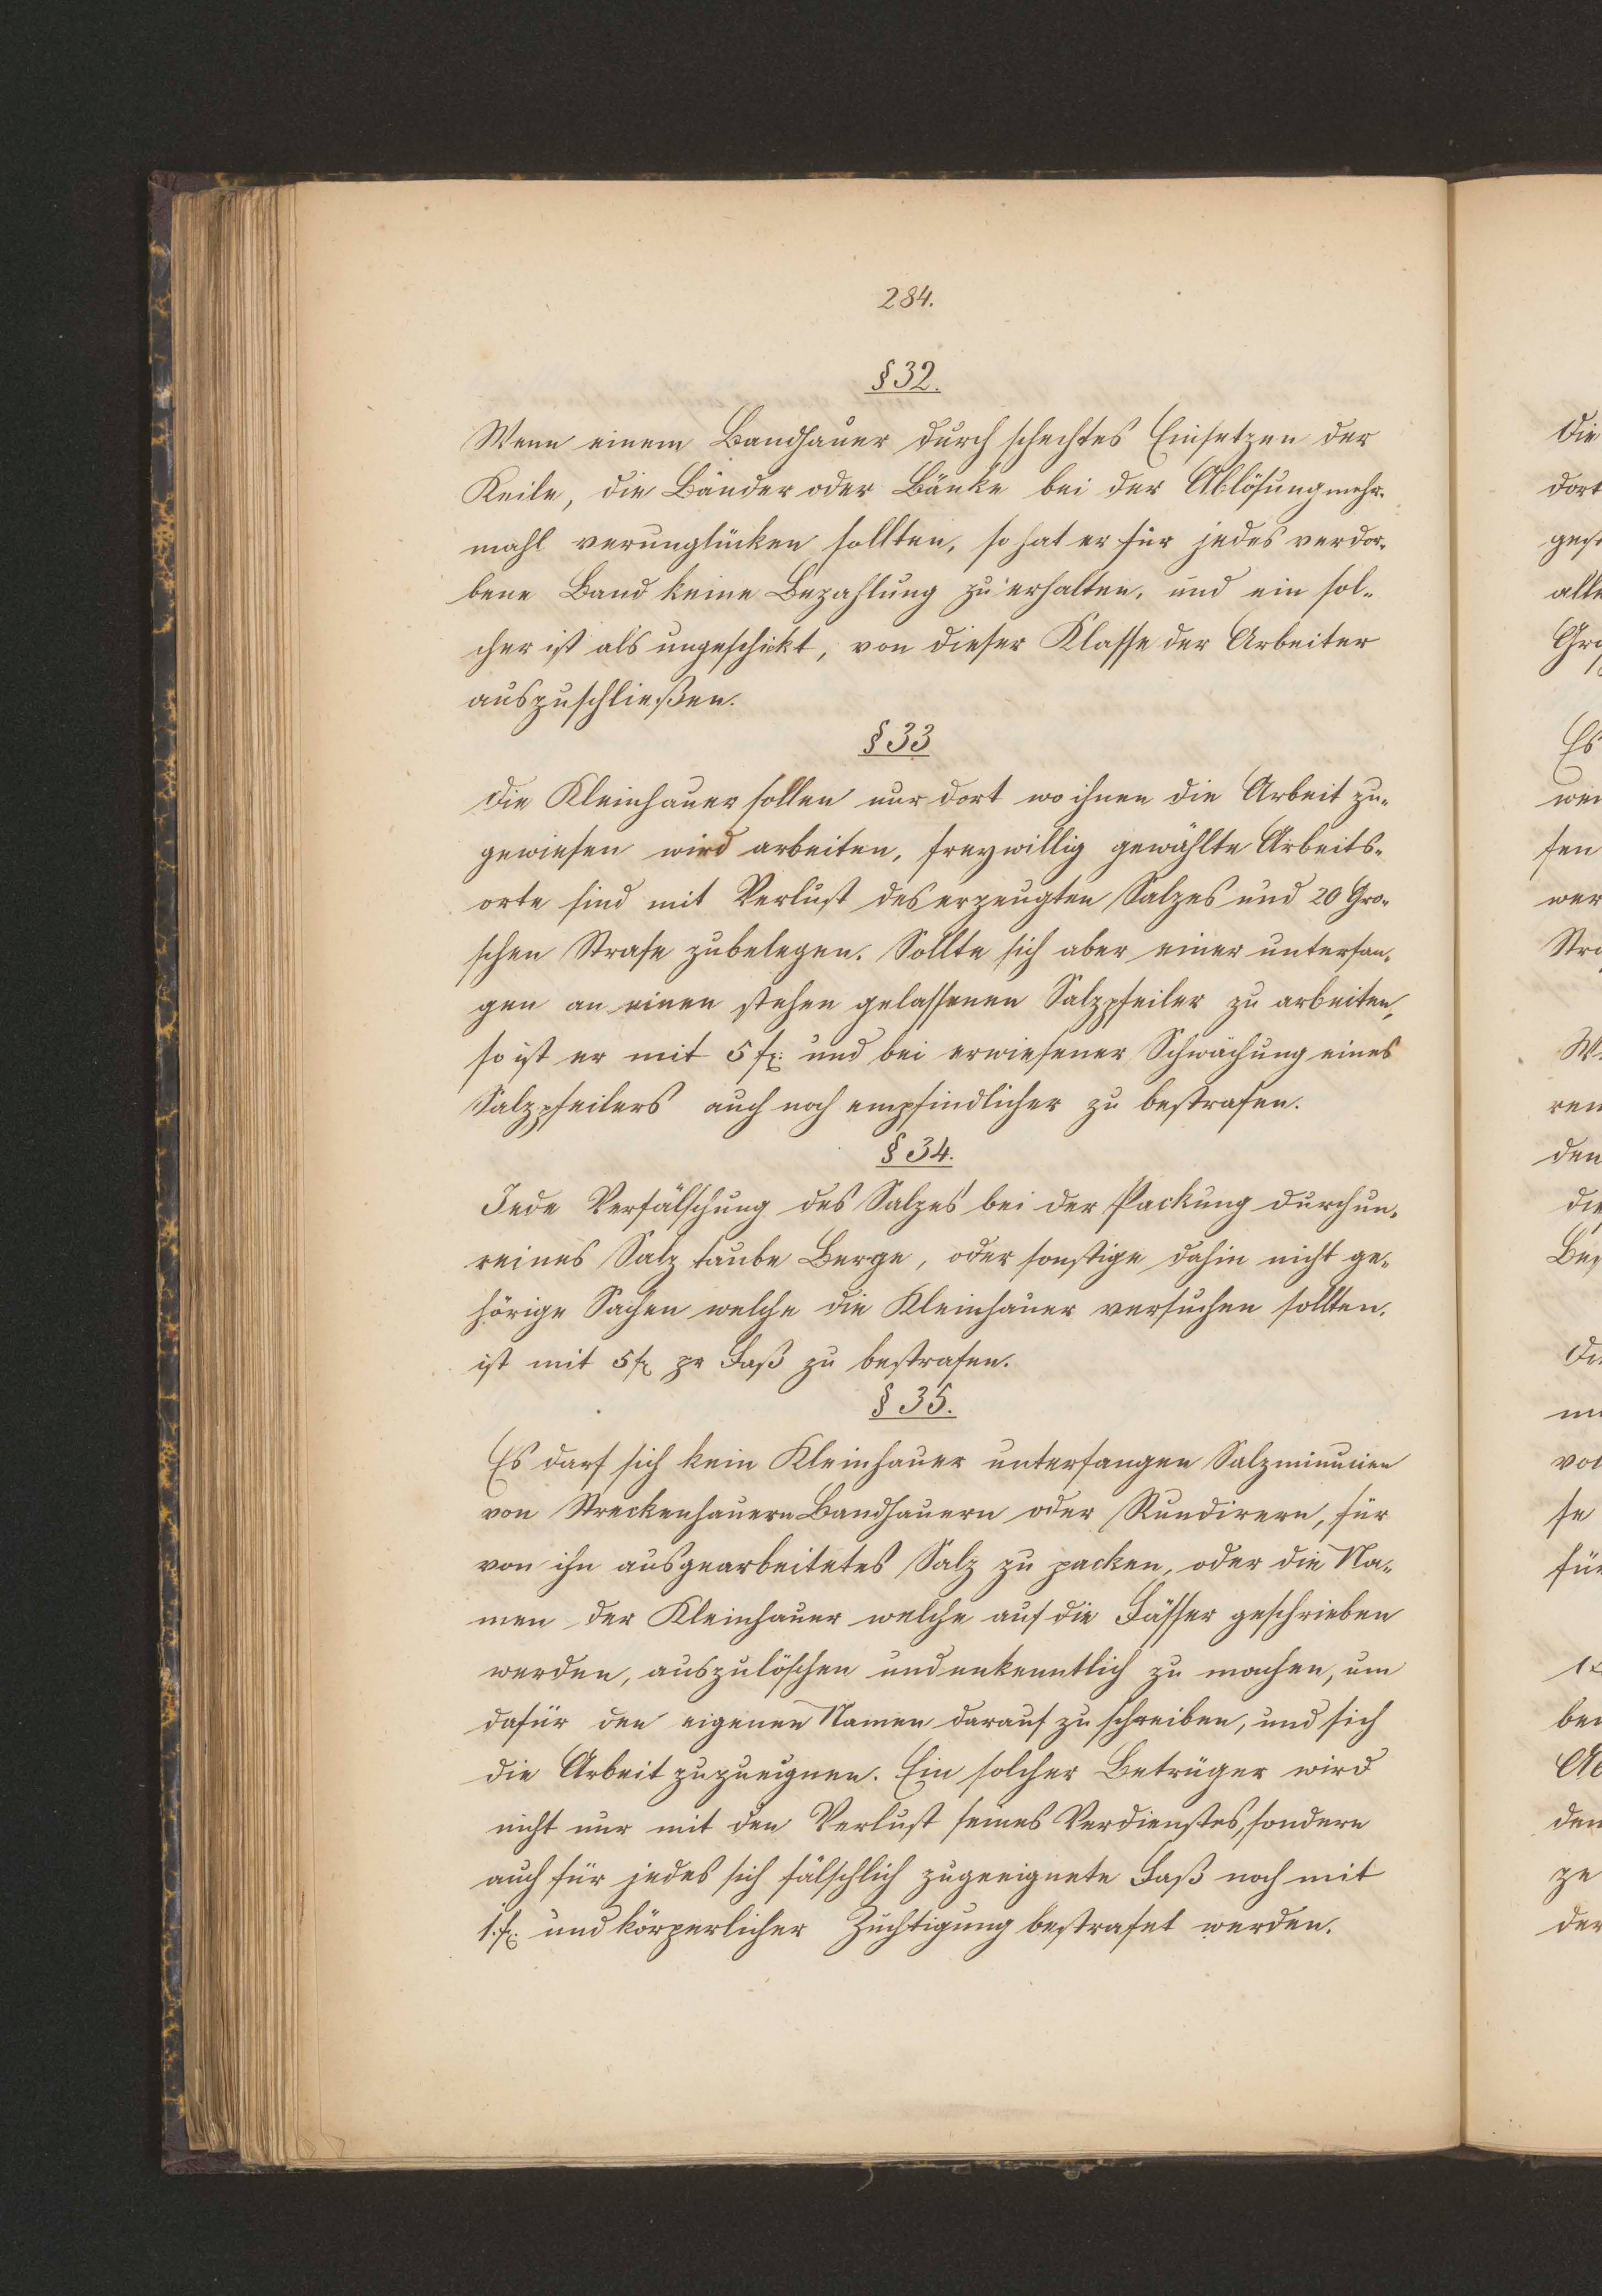 284.
§ 32.
Wenn einem Bandhauer durch schechtes Einsetzen der
Keile, die Bänder oder Bänke bei der Ablösung mehr-
mahl verunglücken sollten, so hat er für jedes verdor-
bene Band keine Bezahlung zu erhalten, und ein sol-
cher ist als ungeschikt, von dieser Klasse der Arbeiter
auszuschließen.
§ 33
Die Kleinhauer sollen nur dort wo ihnen die Arbeit zu-
gewiesen wird arbeiten, freywillig gewählte Arbeits-
orte sind mit Verlust des erzeugten Salzes und 20 Gro-
schen Strafe zubelegen. Sollte sich aber einer unterfan-
gen an einen stehen gelassenen Salzpfeiler zu arbeiten,
so ist er mit 5 fx: und bei erwiesener Schwächung eines
Salzpfeilers auch noch empfindlicher zu bestrafen.
§ 34.
Jede Verfälschung des Salzes bei der Packung durch un-
reines Salz taube Berge, oder sonstige dahin nicht ge-
hörige Sachen welche die Kleinhauer versuchen sollten,
ist mit 5 fx pr Faß zu bestrafen.
§ 35.
Es darf sich kein Kleinhauer unterfangen Salzminucien
von Streckenhauern Bandhauern oder Rundirern, für
von ihn ausgearbeitetes Salz zu packen, oder die Na-
men der Kleinhauer welche auf die Fässer geschrieben
werden, auszulöschen und unkenntlich zu machen, um
dafür den eigenen Namen darauf zu schreiben, und sich
die Arbeit zuzueignen. Ein solcher Betrüger wird
nicht nur mit den Verlust seines Verdienstes, sondern
auch für jedes sich fälschlich zugeeignete Faß noch mit
1 fx: und körperlicher Züchtigung bestrafet werden.